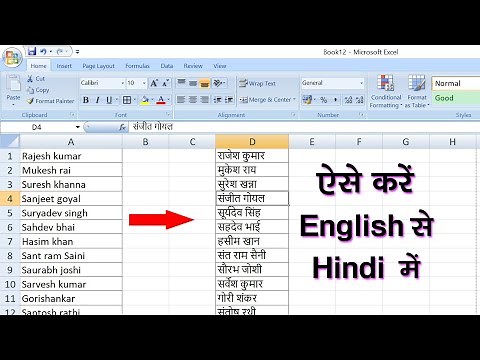 Book12 - Microsoft Excel
Home Page Layout Formulas Data Review View
Cut
Copy
Paste Format Painter
Clipboard
Calibri 10 A A
B I U A
Font
Wrap Text
Merge & Center
Alignment
General
% , .0 .00 .00 .0
Number
Conditional Formatting Format as Table
Normal
Good
D4 fx संजीत गोयल
A B C D E F G H
1 Rajesh kumar राजेश कुमार
2 Mukesh rai मुकेश राय
3 Suresh khanna सुरेश खन्ना
4 Sanjeet goyal संजीत गोयल
5 Suryadev singh सूर्यदेव सिंह
6 Sahdev bhai सहदेव भाई
7 Hasim khan हसीम खान
8 Sant ram Saini संत राम सैनी
9 Saurabh joshi सौरभ जोशी
10 Sarvesh kumar सर्वेश कुमार
11 Gorishankar गोरी शंकर
12 Santosh rathi संतोष रथी
ऐसे करें
English से
Hindi में